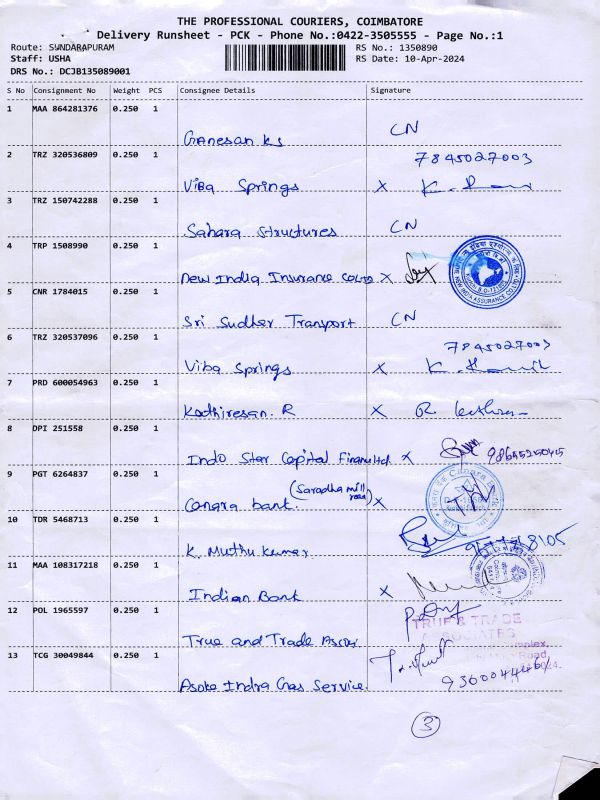 THE PROFESSIONAL COURIERS, COIMBATORE
Delivery Runsheet - PCK - Phone No.:0422-3505555 - Page No.:1
Route: SUNDARAPURAM
RS No.: 1350890
Staff: USHA
RS Date: 10-Apr-2024
DRS No.: DCJB135089001
S No Consignment No Weight PCS Consignee Details Signature
1 MAA 864281376 0.250 1
Ganesan ks CN
2 TRZ 320536809 0.250 1 7845027003
Viba Springs X K.
3 TRZ 150742288 0.250 1
Sahara Structures CN
4 TRP 1508990 0.250 1
New India Insurance Co Ltd X
NEW INDIA ASSURANCE CO. LTD
5 CNR 1784015 0.250 1
Sri Sudher Transport CN
6 TRZ 320537096 0.250 1 7845027003
Viba Springs X K.
7 PRD 600054963 0.250 1
Kadhiresan. R X R.
8 DPI 251558 0.250 1
Indo Star Capital Finan Ltd X
9 PGT 6264837 0.250 1
Canara bank. (Saradha mill road) X
Canara
10 TDR 5468713 0.250 1
K. Muthu kumar
11 MAA 108317218 0.250 1
Indian Bank X
12 POL 1965597 0.250 1
True and Trade Assoy
TRUE & TRADE
ASSOCIATES
13 TCG 30049844 0.250 1
Asoke Indra Gas Service.
3